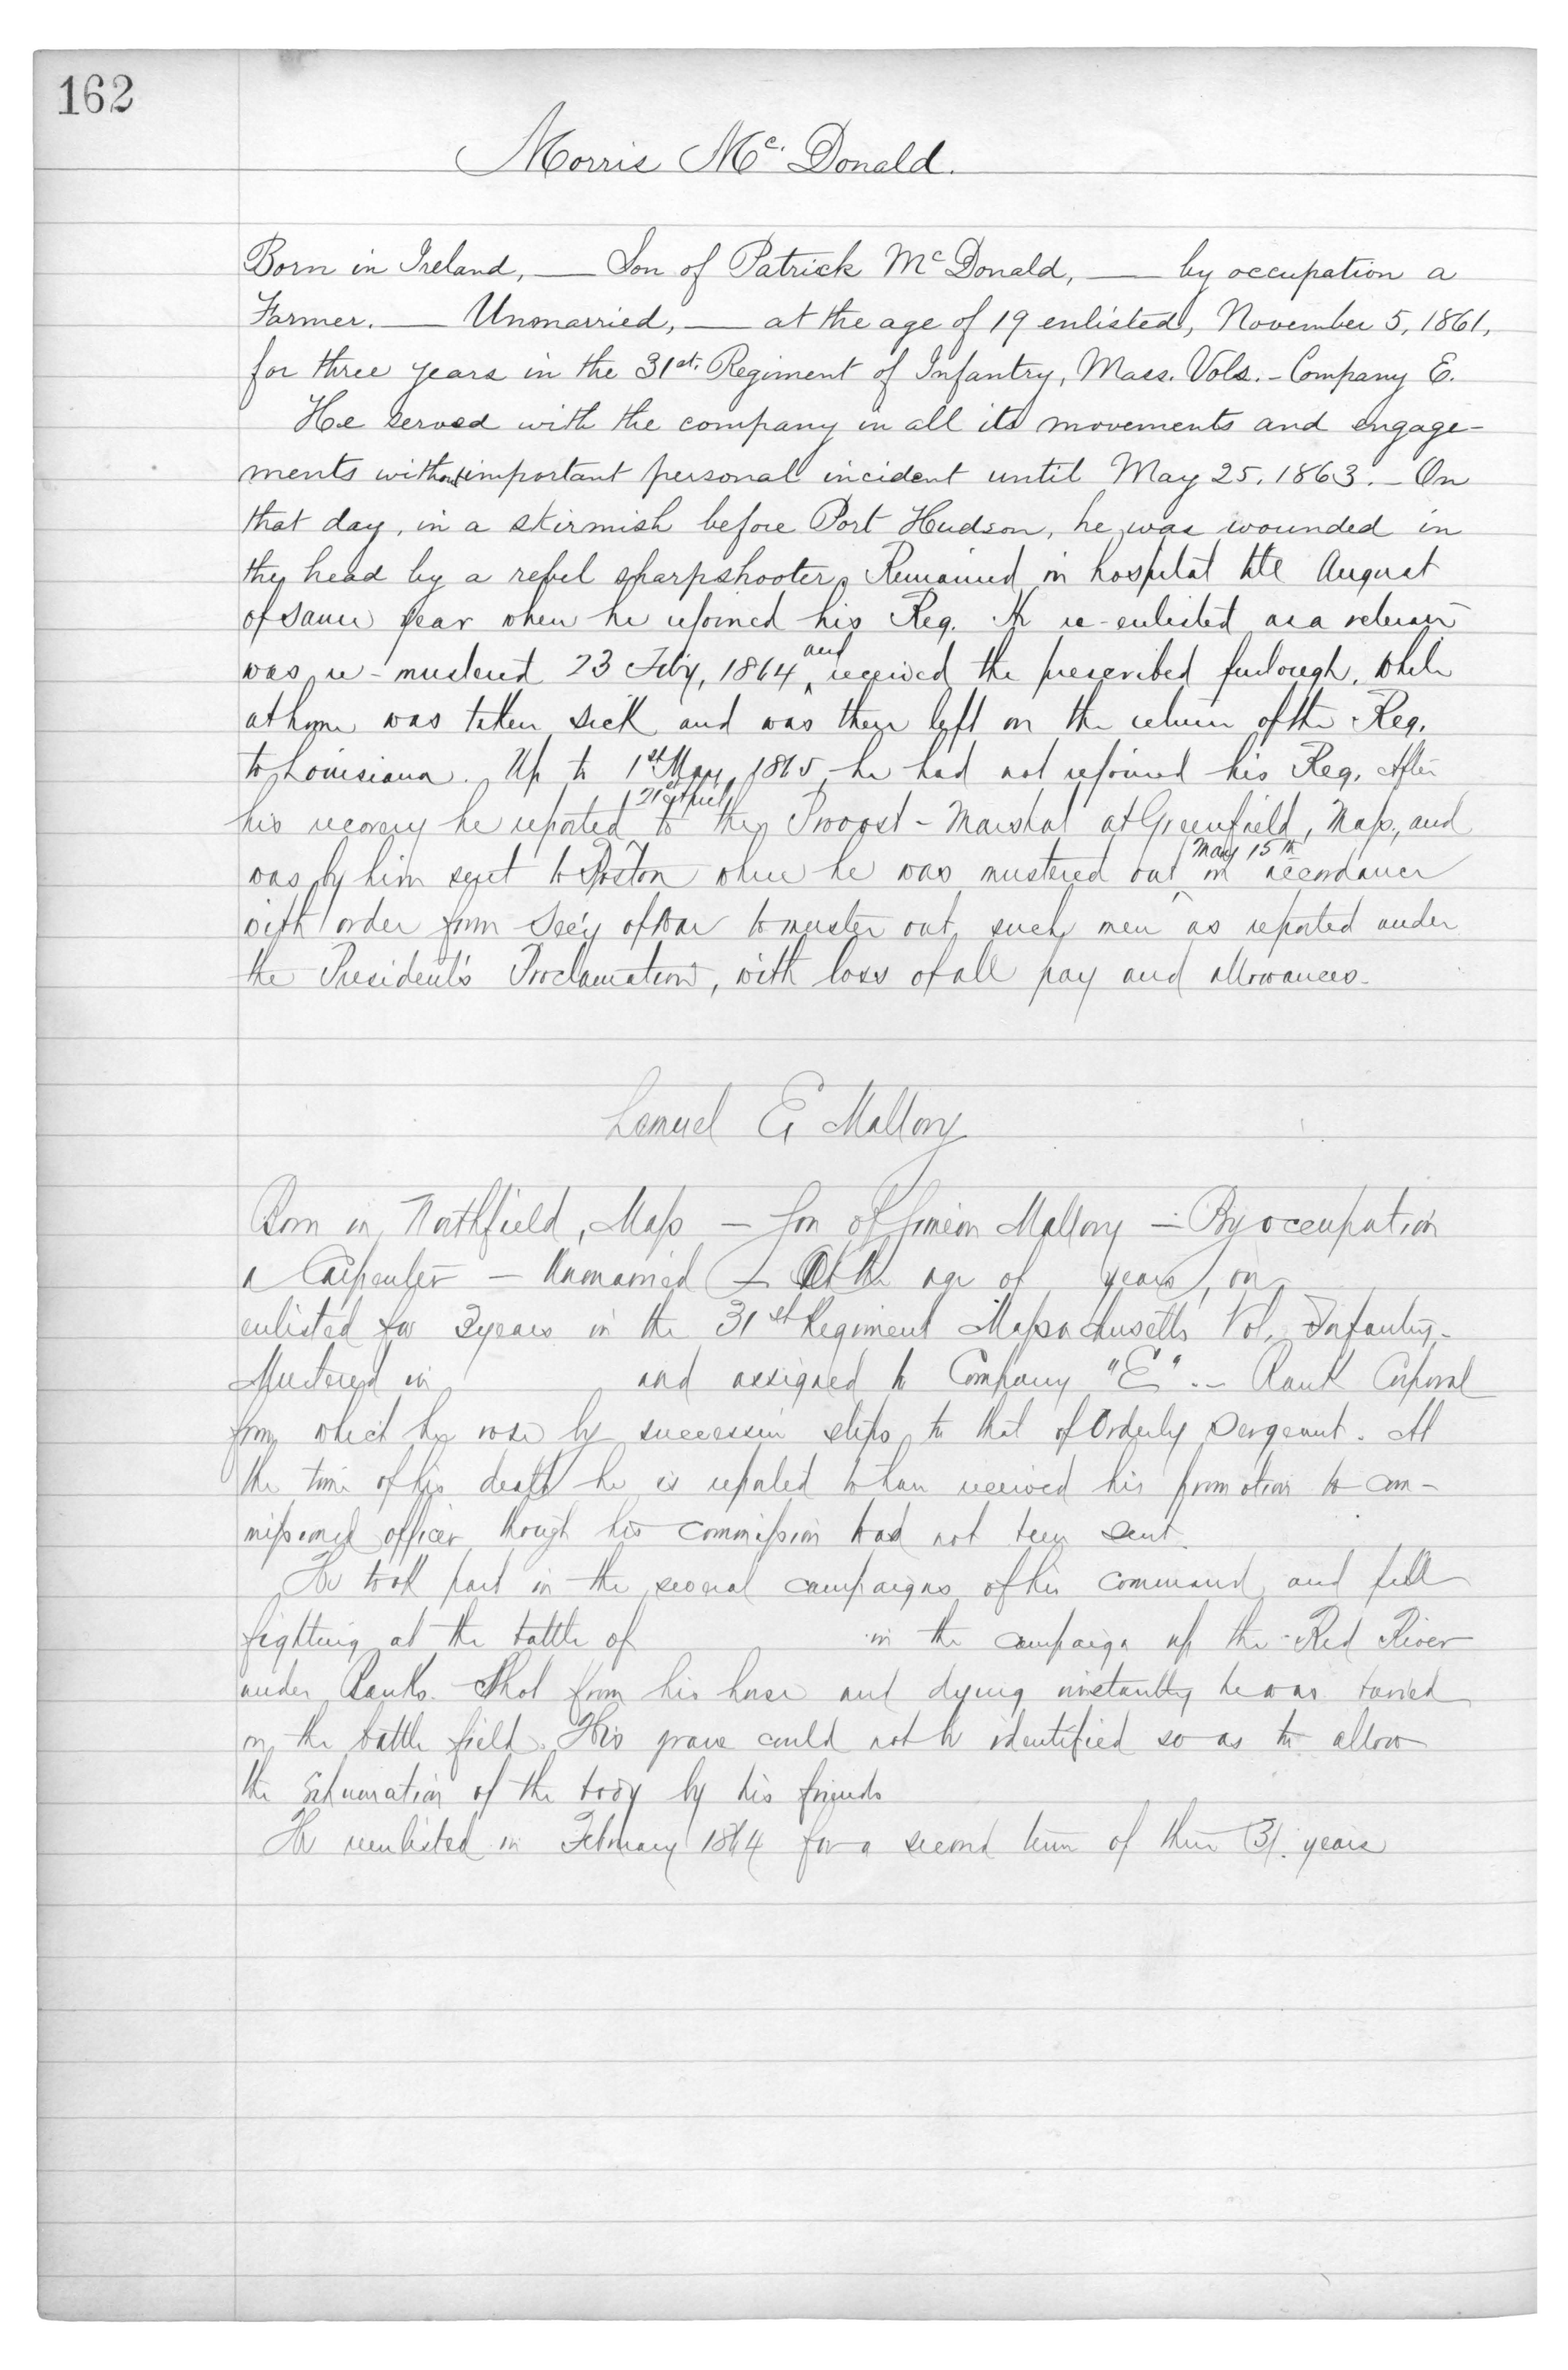 162
Morris Mc. Donald.
Born in Ireland, — Son of Patrick McDonald, — by occupation a
Farmer. — Unmarried, — at the age of 19 enlisted, November 5, 1861,
for three years in the 31st. Regiment of Infantry, Mass. Vols. - Company E.
He served with the company in all its movements and engage-
ments without important personal incident until May 25, 1863. - On
that day, in a skirmish before Port Hudson, he was wounded in
the head by a rebel sharpshooter. Remained in hospital till August
of same year when he rejoined his Reg. He re-enlisted as a veteran
was re-mustered 23 Feb'y, 1864, and received the prescribed furlough. While
at home was taken sick and was then left on the return of the Reg.
to Louisiana. Up to 1st May, 1865, he had not rejoined his Reg. After
his recovery he reported 21st April to the Provost-Marshal at Greenfield, Mass., and
was by him sent to Boston where he was mustered out May 15th in accordance
with order from Sec'y of War to muster out such men as reported under
the President's Proclamation, with loss of all pay and allowances.
Lemuel E Mallory
Born in Northfield, Mass - Son of Simeon Mallory - By occupation
a Carpenter - Unmarried - At the age of years, on
enlisted for 3 years in the 31st Regiment Massachusetts Vol. Infantry.
Mustered in and assigned to Company "E". - Rank Corporal
from which he rose by successive steps to that of Orderly Sergeant. At
the time of his death he is reported to have received his promotion to com-
missioned officer though his commission had not been sent.
He took part in the several campaigns of his command and fell
fighting at the battle of in the campaign up the Red River
under Banks. Shot from his horse and dying instantly he was buried
on the battle field. His grave could not be identified so as to allow
the exhumation of the body by his friends
He reenlisted in February 1864 for a second term of three 3/. years